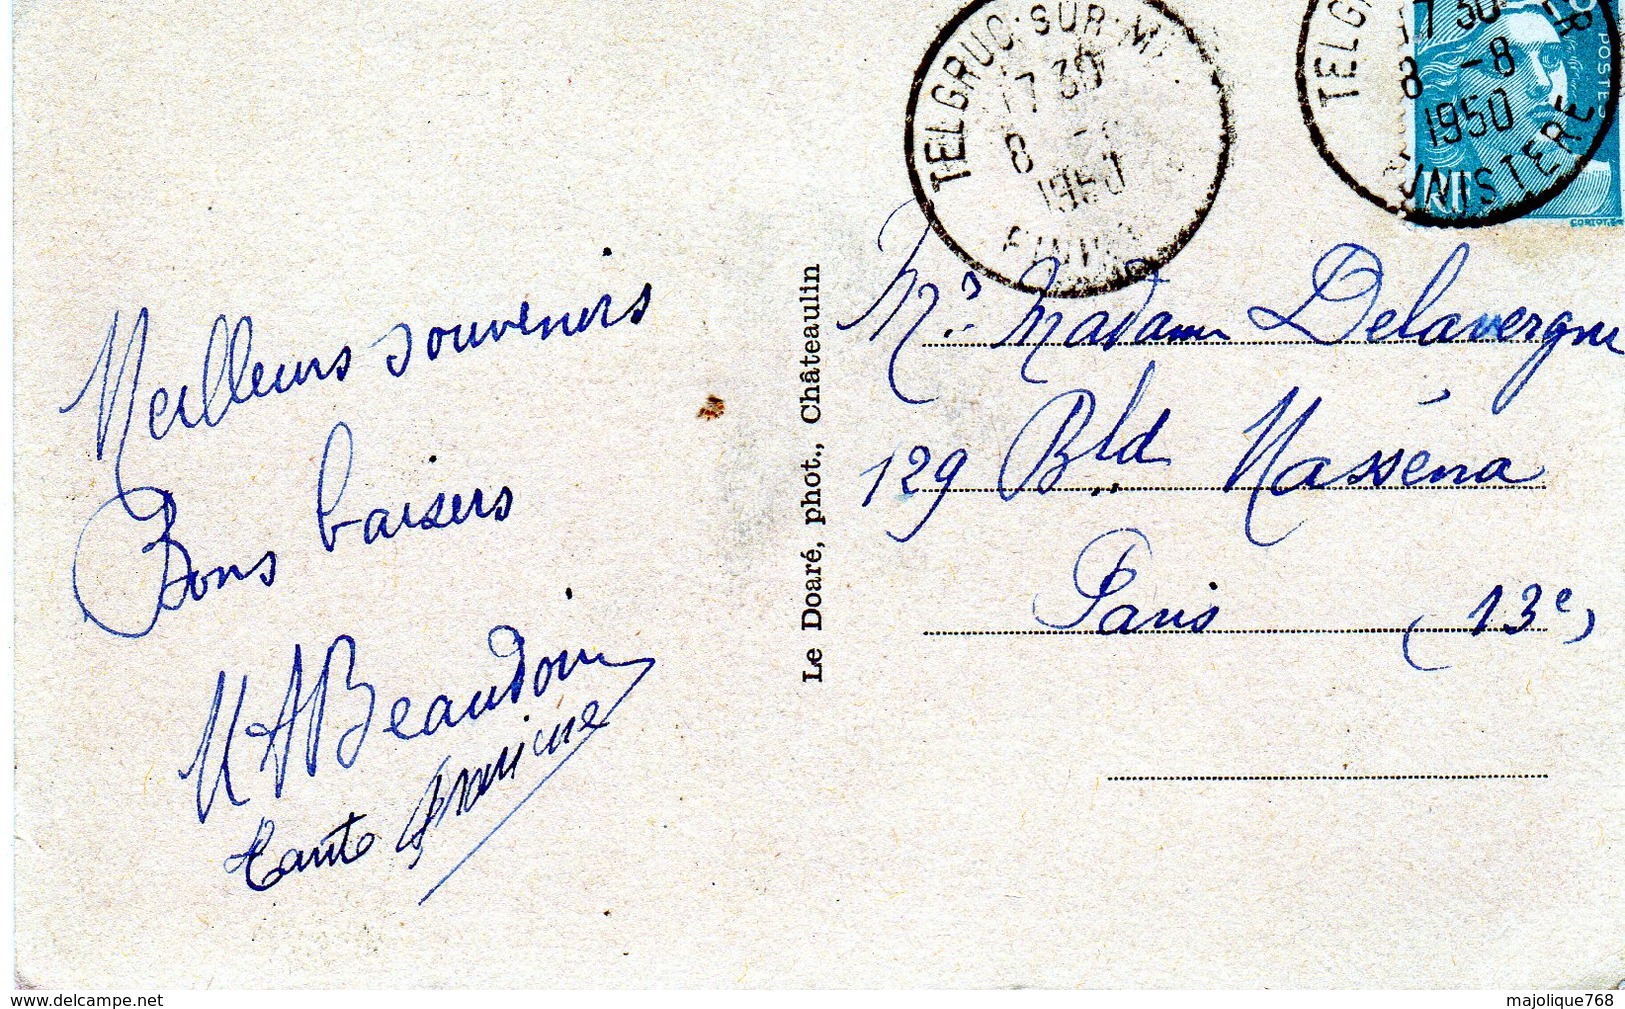 Meilleurs souvenirs
Bons baisers
MABeaudouin
Tante
Le Doaré, phot., Châteaulin
TELGRUC-SUR-M
17 30
8
1950
FINIS
TELG
ER
17 30
8 -8
1950
FINISTERE
POSTES
RF
Mr. Madame Delavergne
129 Bld Masséna
Paris (13e)
delcampe.net
majolique768